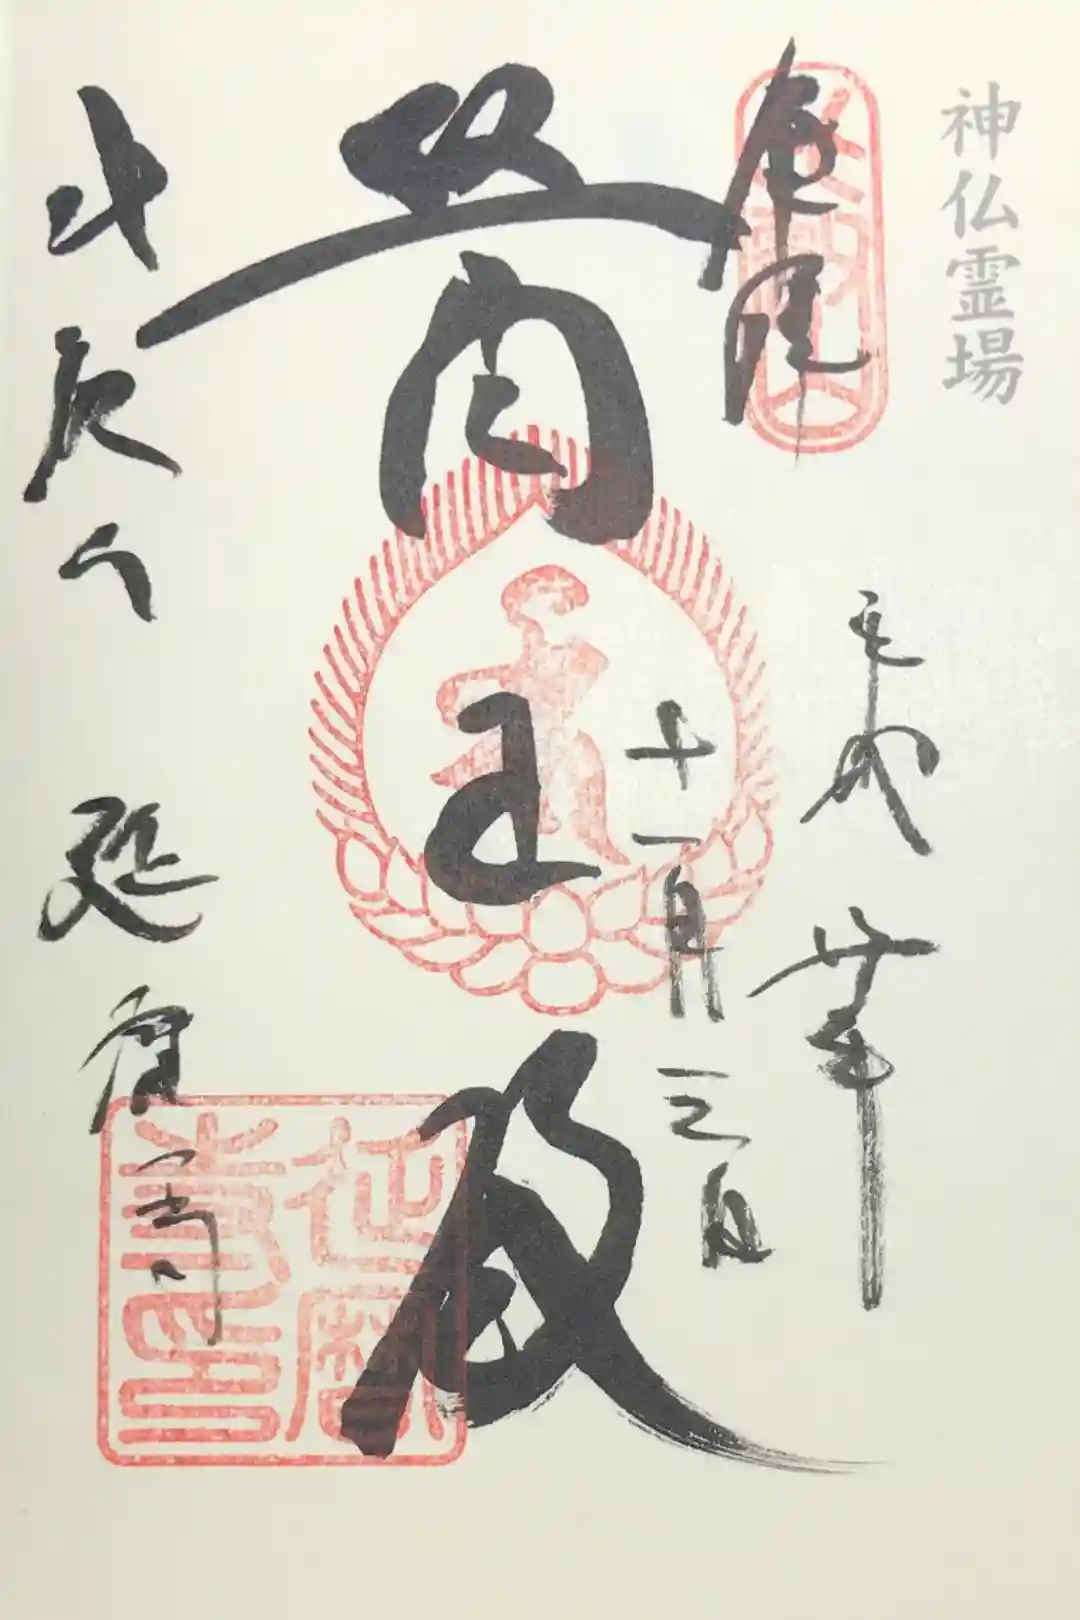 神仏霊場
奉拝
平成廿年
十一月三日
醫王殿
比叡山
延暦寺
延暦
寺印